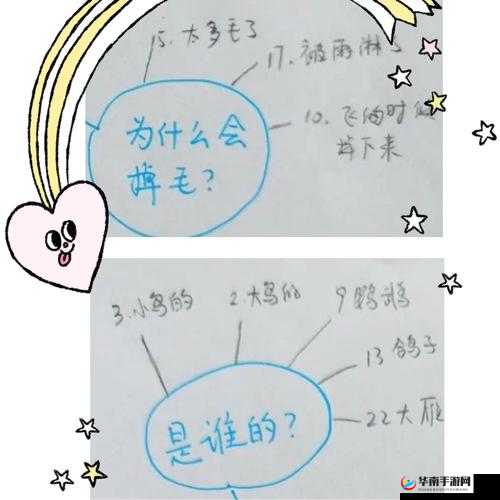 15. 太多毛了
17. 被雨淋了
10. 飞的时候
掉下来
为什么会
掉毛?
3. 小鸟的
2. 大鸟的
9 鹦鹉
13 鸽子
22 大雁
是谁的?
华南手游网